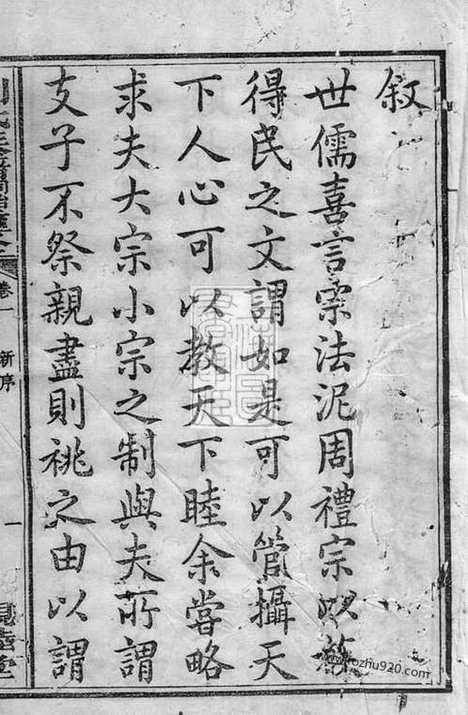 敘
世儒喜言宗法泥周禮宗以族
得民之文謂如是可以管攝天
下人心可以教天下睦余嘗略
求夫大宗小宗之制與夫所謂
支子不祭親盡則祧之由以謂
卷一 新序
一
睦堂
zhu920.com